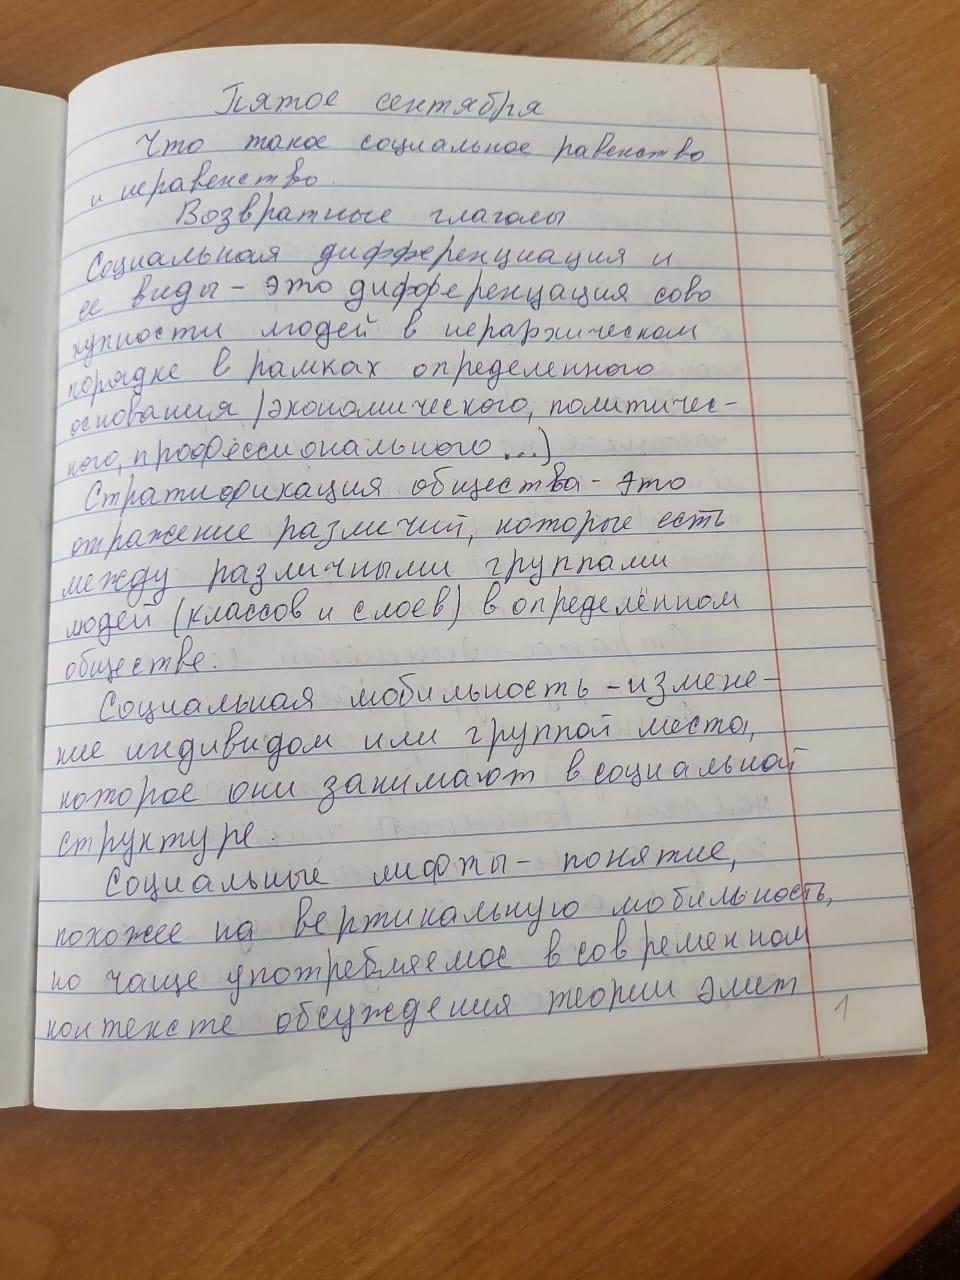 Пятое сентября
Что такое социальное равенство
и неравенство.
Возвратные глаголы
Социальная дифференциация и
ее виды - это дифференцация сово
купности людей в иерархическом
порядке в рамках определенного
основания (экономического, политичес-
кого, профессионального ...)
Стратификация общества - это
отражение различий, которые есть
между различными группами
людей (классов и слоев) в определённом
обществе.
Социальная мобильность - измене-
ние индивидом или группой места,
которое они занимают в социальной
структуре.
Социальные лифты - понятие,
похожее на вертикальную мобильность,
но чаще употребляемое в современном
контексте обсуждения теории элит
1